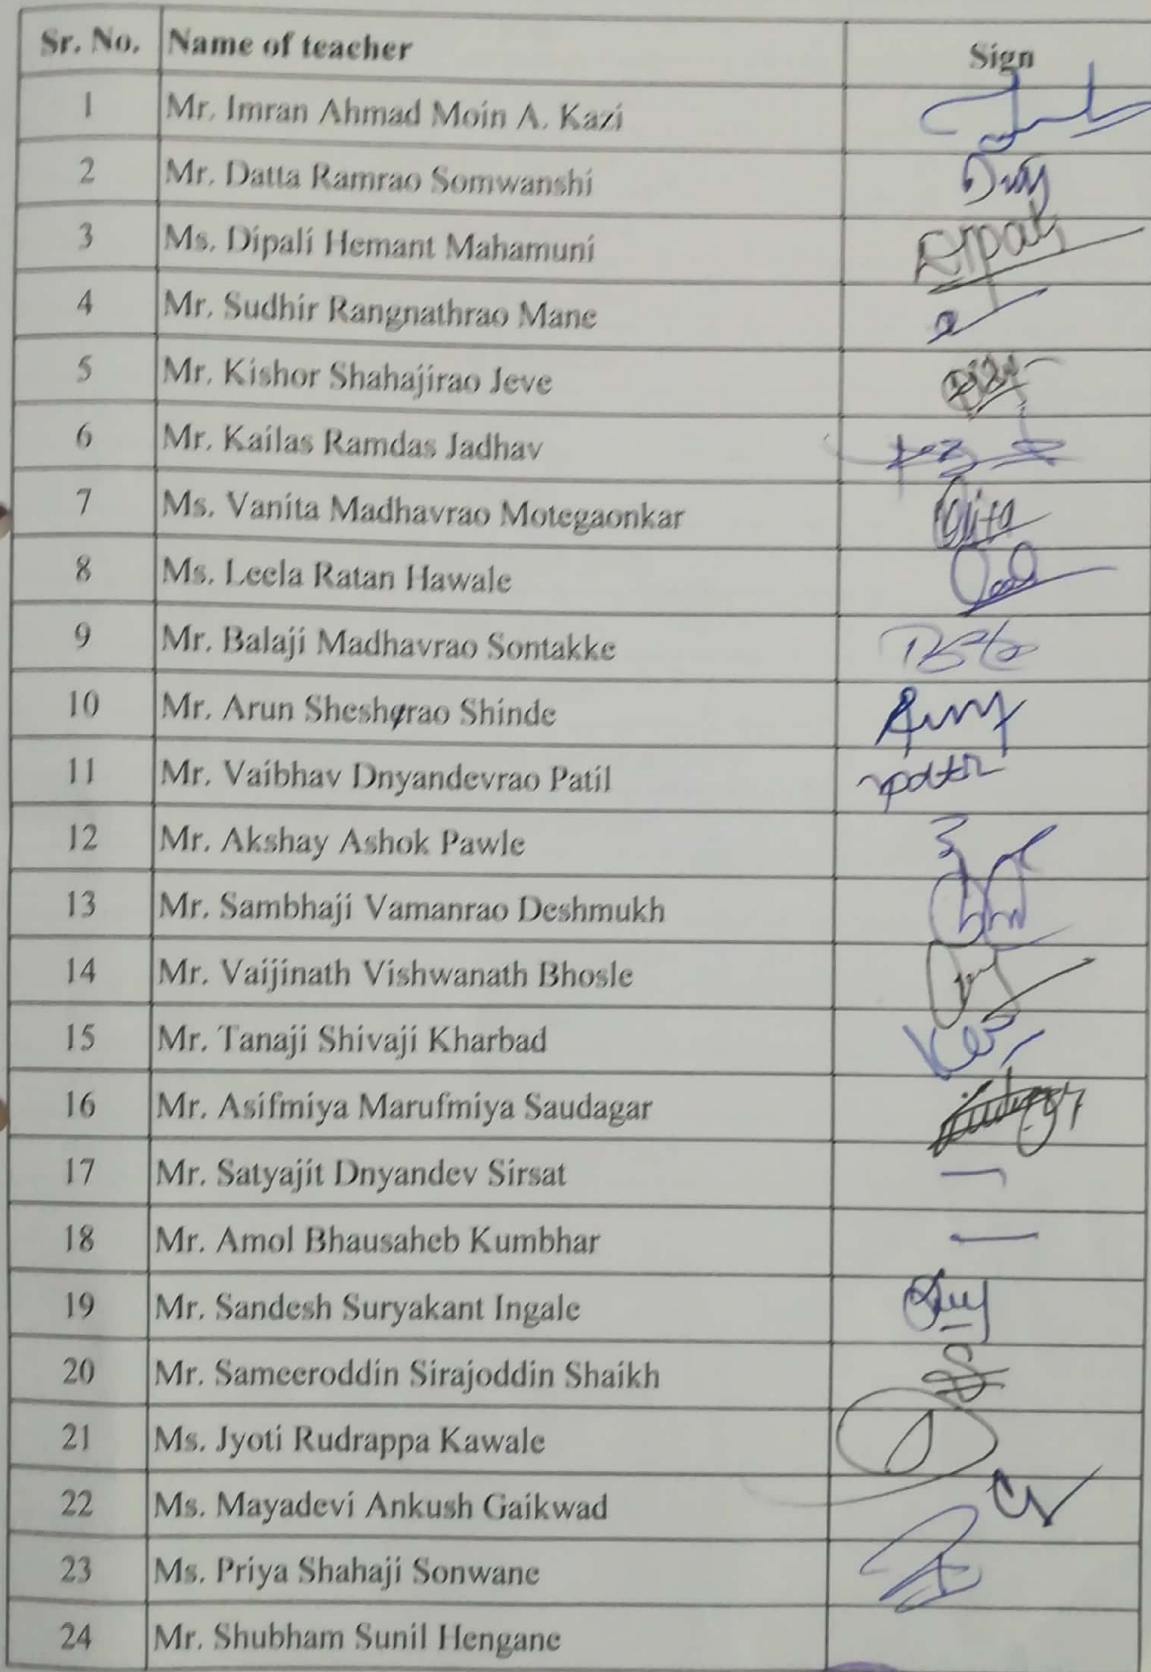 Sr. No. Name of teacher Sign
1 Mr. Imran Ahmad Moin A. Kazi
2 Mr. Datta Ramrao Somwanshi
3 Ms. Dipali Hemant Mahamuni Dipali
4 Mr. Sudhir Rangnathrao Mane
5 Mr. Kishor Shahajirao Jeve
6 Mr. Kailas Ramdas Jadhav
7 Ms. Vanita Madhavrao Motegaonkar
8 Ms. Leela Ratan Hawale
9 Mr. Balaji Madhavrao Sontakke
10 Mr. Arun Sheshrao Shinde
11 Mr. Vaibhav Dnyandevrao Patil
12 Mr. Akshay Ashok Pawle
13 Mr. Sambhaji Vamanrao Deshmukh
14 Mr. Vaijinath Vishwanath Bhosle
15 Mr. Tanaji Shivaji Kharbad
16 Mr. Asifmiya Marufmiya Saudagar
17 Mr. Satyajit Dnyandev Sirsat
18 Mr. Amol Bhausaheb Kumbhar
19 Mr. Sandesh Suryakant Ingale
20 Mr. Sameeroddin Sirajoddin Shaikh
21 Ms. Jyoti Rudrappa Kawale
22 Ms. Mayadevi Ankush Gaikwad
23 Ms. Priya Shahaji Sonwane
24 Mr. Shubham Sunil Hengane